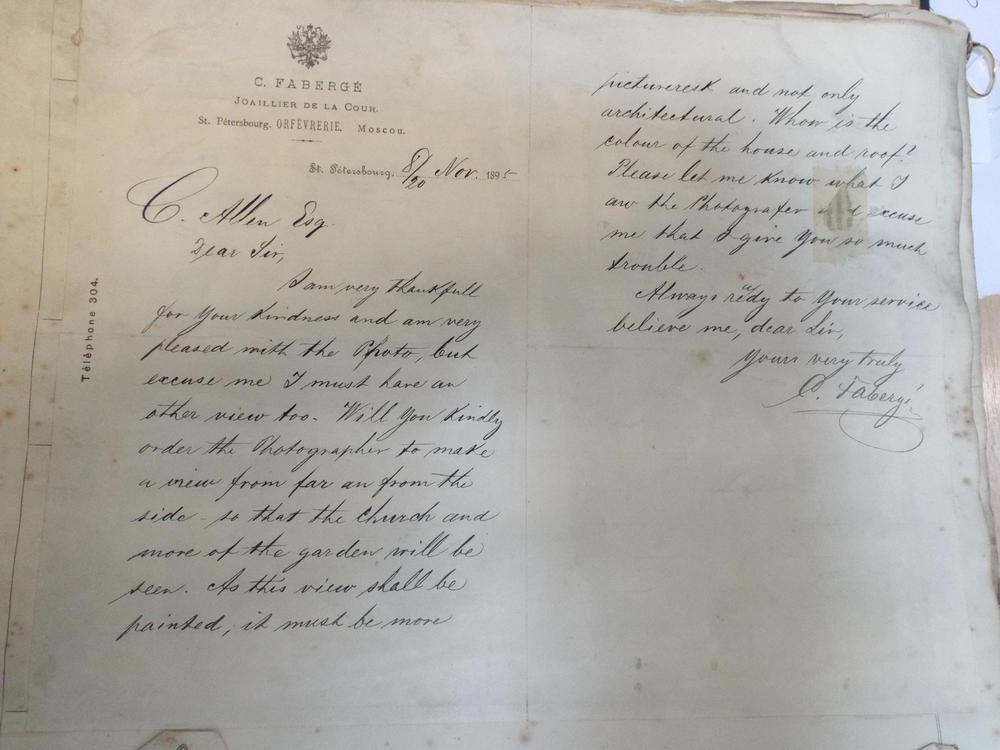 C. FABERGÉ
JOAILLIER DE LA COUR.
St. Pétersbourg. ORFÈVRERIE. Moscou.
St. Pétersbourg. 8/20 Nov. 1895
Téléphone 304.
C. Allen Esq.
Dear Sir,
I am very thankfull
for Your kindness and am very
pleased with the Photo, but
excuse me I must have an
other view too. Will You kindly
order the Photographer to make
a view from far an from the
side - so that the church and
more of the garden will be
seen. As this view shall be
painted, it must be more
pictureresk and not only
architectural. Whow is the
colour of the house and roof?
Please let me know what I
aw the Photografer and excuse
me that I give You so much
trouble.
Always redy to Your service
believe me, dear Sir,
Yours very truly
C. Fabergé